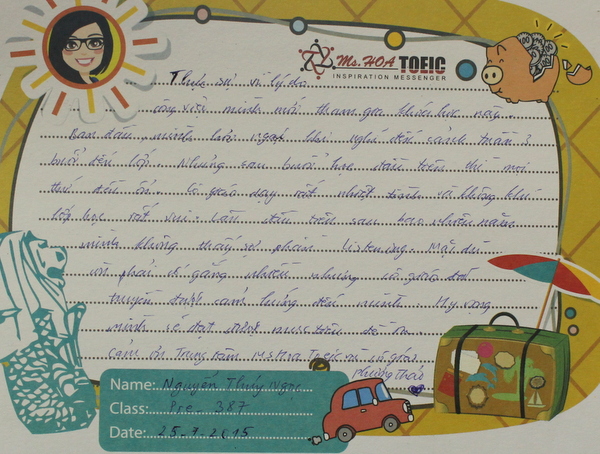 Ms.HOA TOEIC
INSPIRATION MESSENGER
Thực sự vì lý do
công việc mình mới tham gia khóa học này.
Ban đầu mình hơi ngại khi nghĩ đến cảnh tuần 3
buổi đến lớp. Nhưng sau buổi học đầu tiên thì mọi
thứ đều ổn. Cô giáo dạy rất nhiệt tình và không khí
lớp học rất vui. Lần đầu tiên sau bao nhiêu năm
mình không thấy sợ phần listening. Mặc dù
còn phải cố gắng nhiều nhưng cô giáo đã
truyền được cảm hứng đến mình. Hy vọng
mình sẽ đạt được mục tiêu đề ra
Cảm ơn Trung tâm Ms Hoa Toeic và cô giáo
Phương Thảo
Name: Nguyễn Thúy Ngọc
Class: Pre 387
Date: 25.7.2015